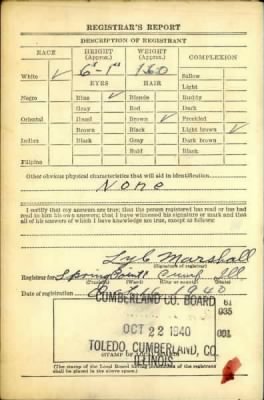 REGISTRAR'S REPORT
DESCRIPTION OF REGISTRANT
RACE HEIGHT (Approx.) WEIGHT (Approx.) COMPLEXION
White ✓ 6'-1" 160 Sallow
EYES HAIR Light
Negro Blue ✓ Blonde Ruddy
Gray Red Dark
Oriental Hazel Brown ✓ Freckled
Brown Black Light brown ✓
Indian Black Gray Dark brown
Bald Black
Filipino
Other obvious physical characteristics that will aid in identification
None
I certify that my answers are true; that the person registered has read or has had
read to him his own answers; that I have witnessed his signature or mark and that
all of his answers of which I have knowledge are true, except as follows:
Marshall
(Signature of registrar)
Registrar for Cumb Ill
(Precinct) (Ward) (City or county) (State)
Date of registration Oct 16 1940
CUMBERLAND CO. BOARD 61
035
OCT 22 1940 001
TOLEDO, CUMBERLAND, CO
ILLINOIS
(STAMP OF LOCAL BOARD)
(The stamp of the Local Board having jurisdiction of the registrant
shall be placed in the above space.)